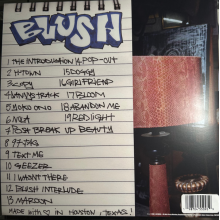 BLUSH
1 THE INTRODUCTION 14 POP-OUT
2 HTOWN 15 DOGGY
3 COPY 16 GIRLFRIEND
4 LANNYS TRACK 17 BLOOM
5 YOKO ONO 18 ABANDON ME
6 MIA 19 REDLIGHT
7 POST BREAK UP BEAUTY
8 97 JAG
9 TEXT ME
10 GEEZER
11 I WASNT THERE
12 BLUSH INTERLUDE
13 MAROON
MADE WITH ♡ IN HOUSTON, TEXAS!